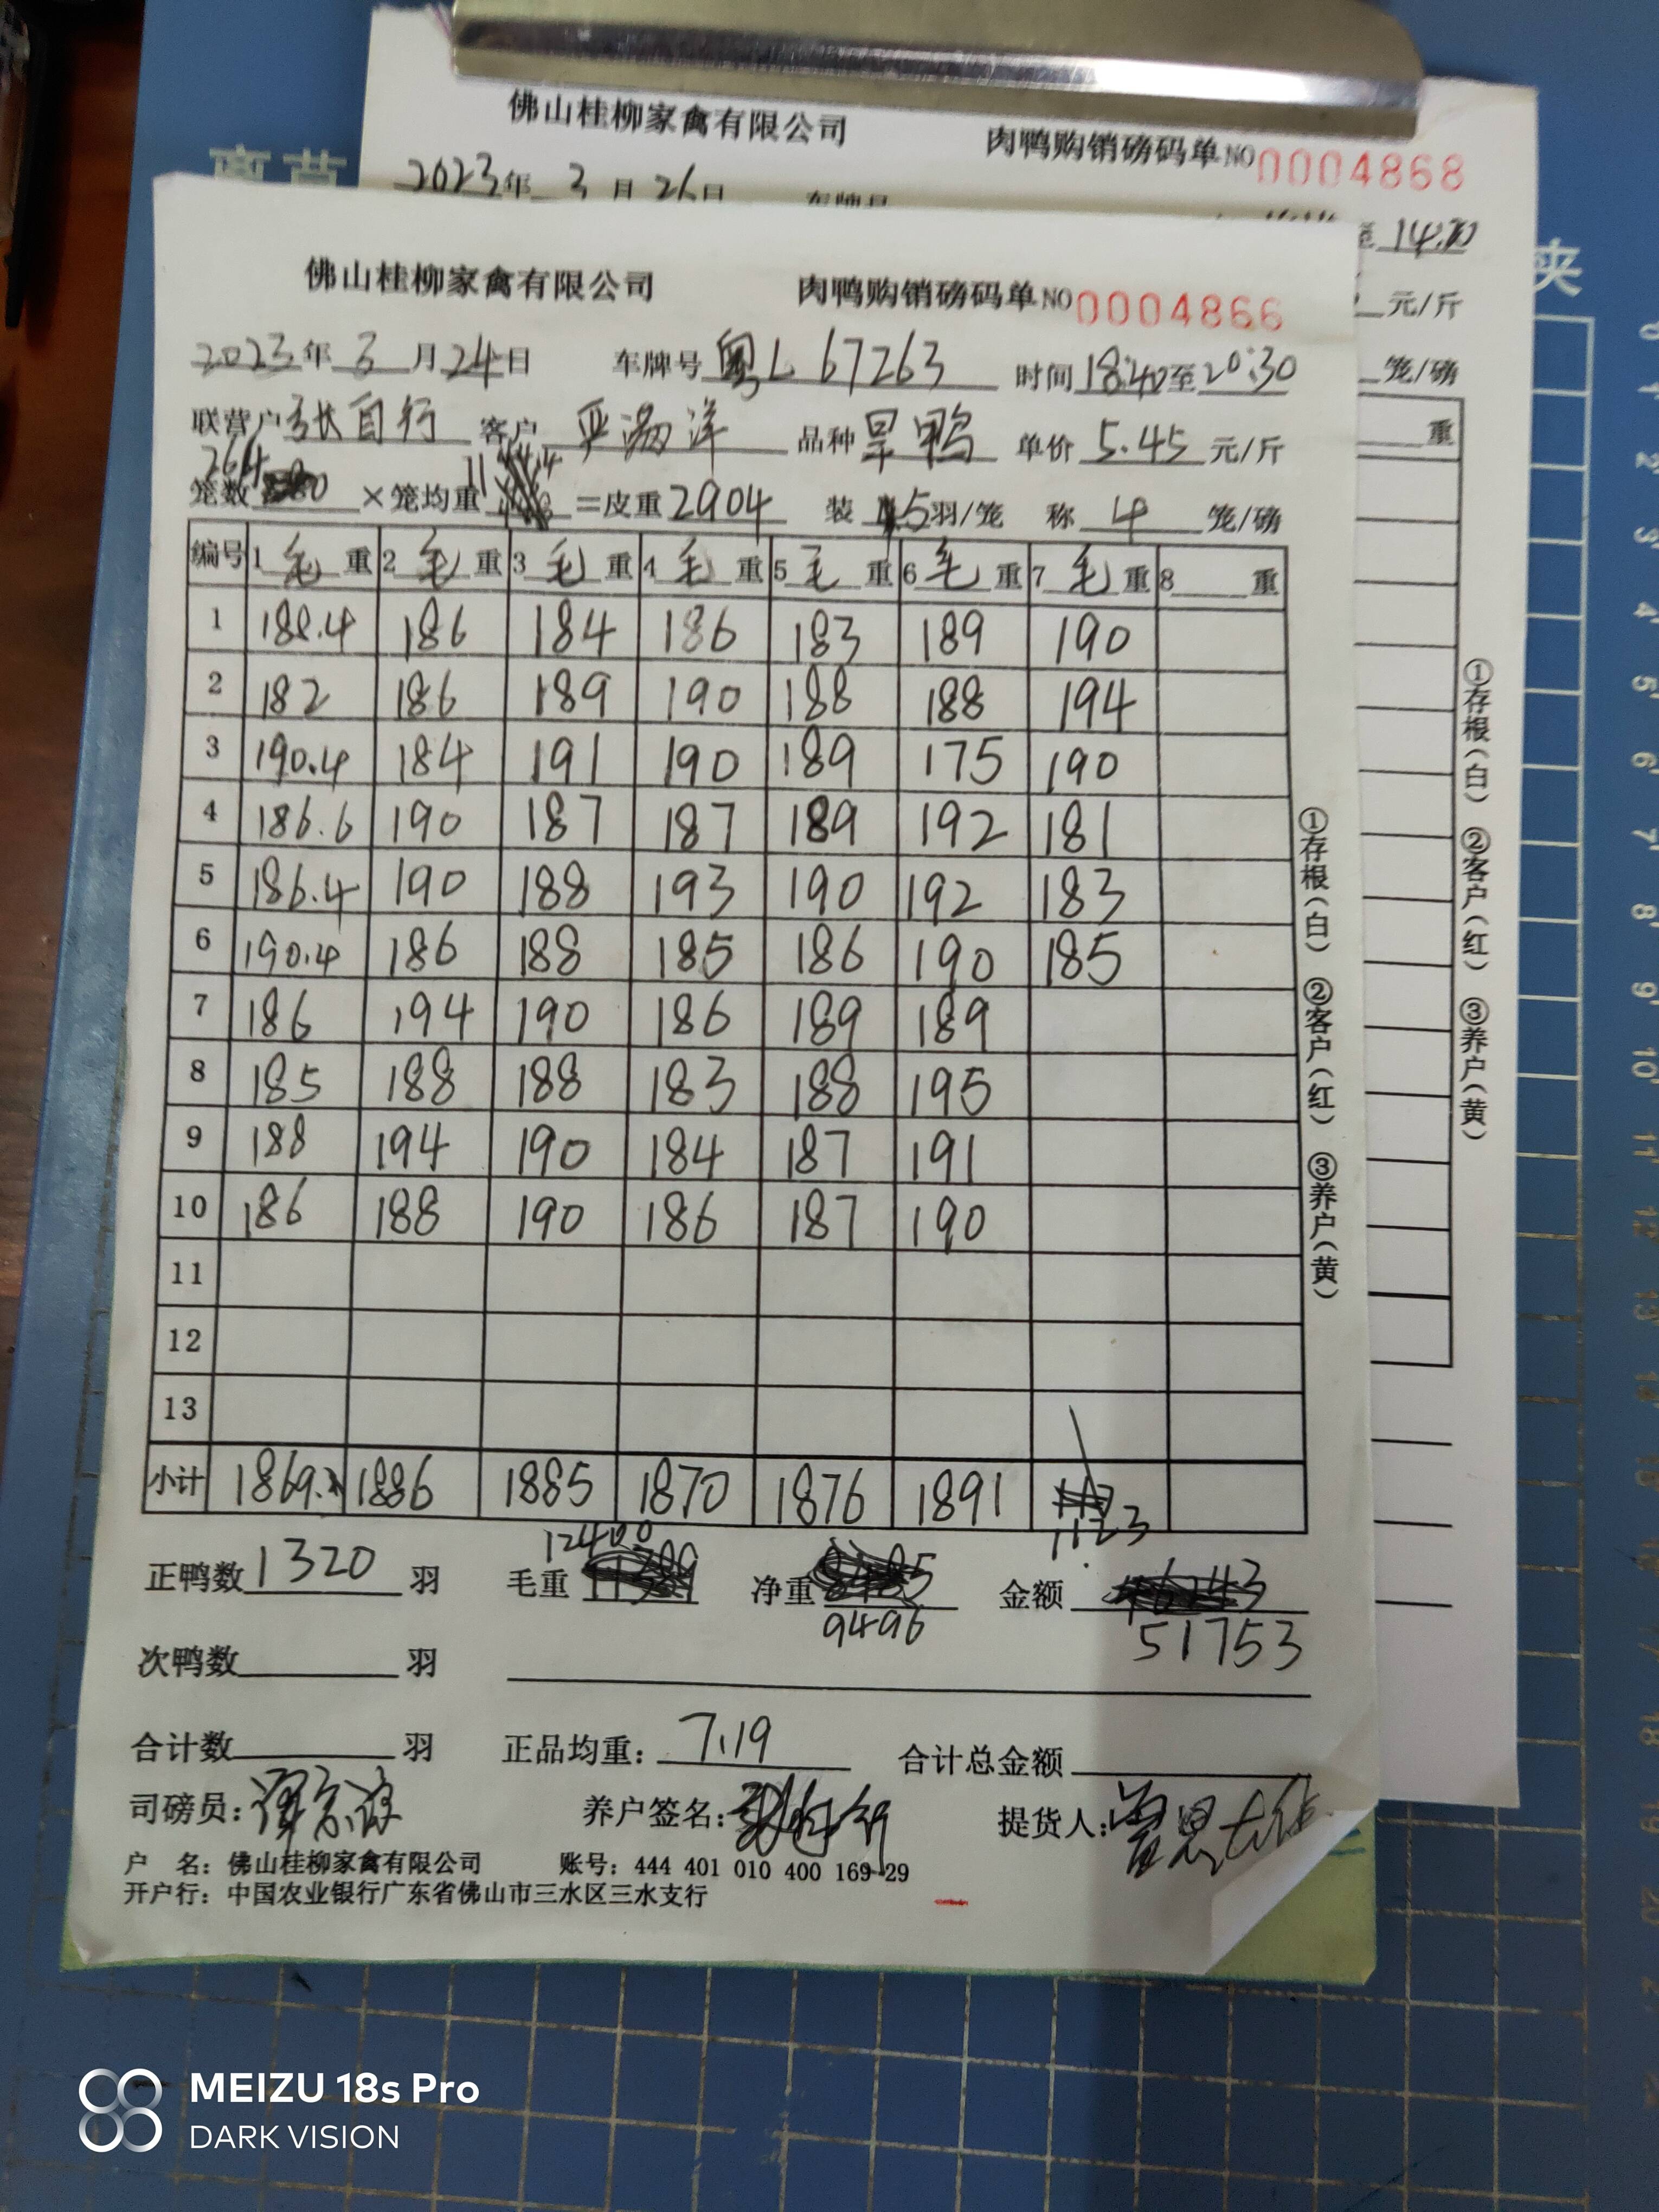 佛山桂柳家禽有限公司 肉鸭购销磅码单NO 0004868
2023年 3 月 26日
元/斤
笼/磅
重
①存根(白) ②客户(红) ③养户(黄)
佛山桂柳家禽有限公司 肉鸭购销磅码单NO 0004866
2023年 3 月 24日 车牌号 粤L 67263 时间 18:40至20:30
联营户 张自行 客户 品种 旱鸭 单价 5.45 元/斤
264
笼数 ×笼均重 11 =皮重 2904 装 5羽/笼 称 4 笼/磅
编号 1 毛 重 2 毛 重 3 毛 重 4 毛 重 5 毛 重 6 毛 重 7 毛 重 8 重
1 188.4 186 184 186 183 189 190
2 182 186 189 190 188 188 194
3 190.4 184 191 190 189 175 190
4 186.6 190 187 187 189 192 181
5 186.4 190 188 193 190 192 183
6 190.4 186 188 185 186 190 185
7 186 194 190 186 189 189
8 185 188 188 183 188 195
9 188 194 190 184 187 191
10 186 188 190 186 187 190
11
12
13
小计 1869.2 1886 1885 1870 1876 1891 1123
12400
正鸭数 1320 羽 毛重 净重 金额
9496 51753
次鸭数 羽
合计数 羽 正品均重: 7.19 合计总金额
司磅员: 养户签名: 提货人:
户 名: 佛山桂柳家禽有限公司 账号: 444 401 010 400 169 29
开户行: 中国农业银行广东省佛山市三水区三水支行
①存根(白) ②客户(红) ③养户(黄)
MEIZU 18s Pro
DARK VISION